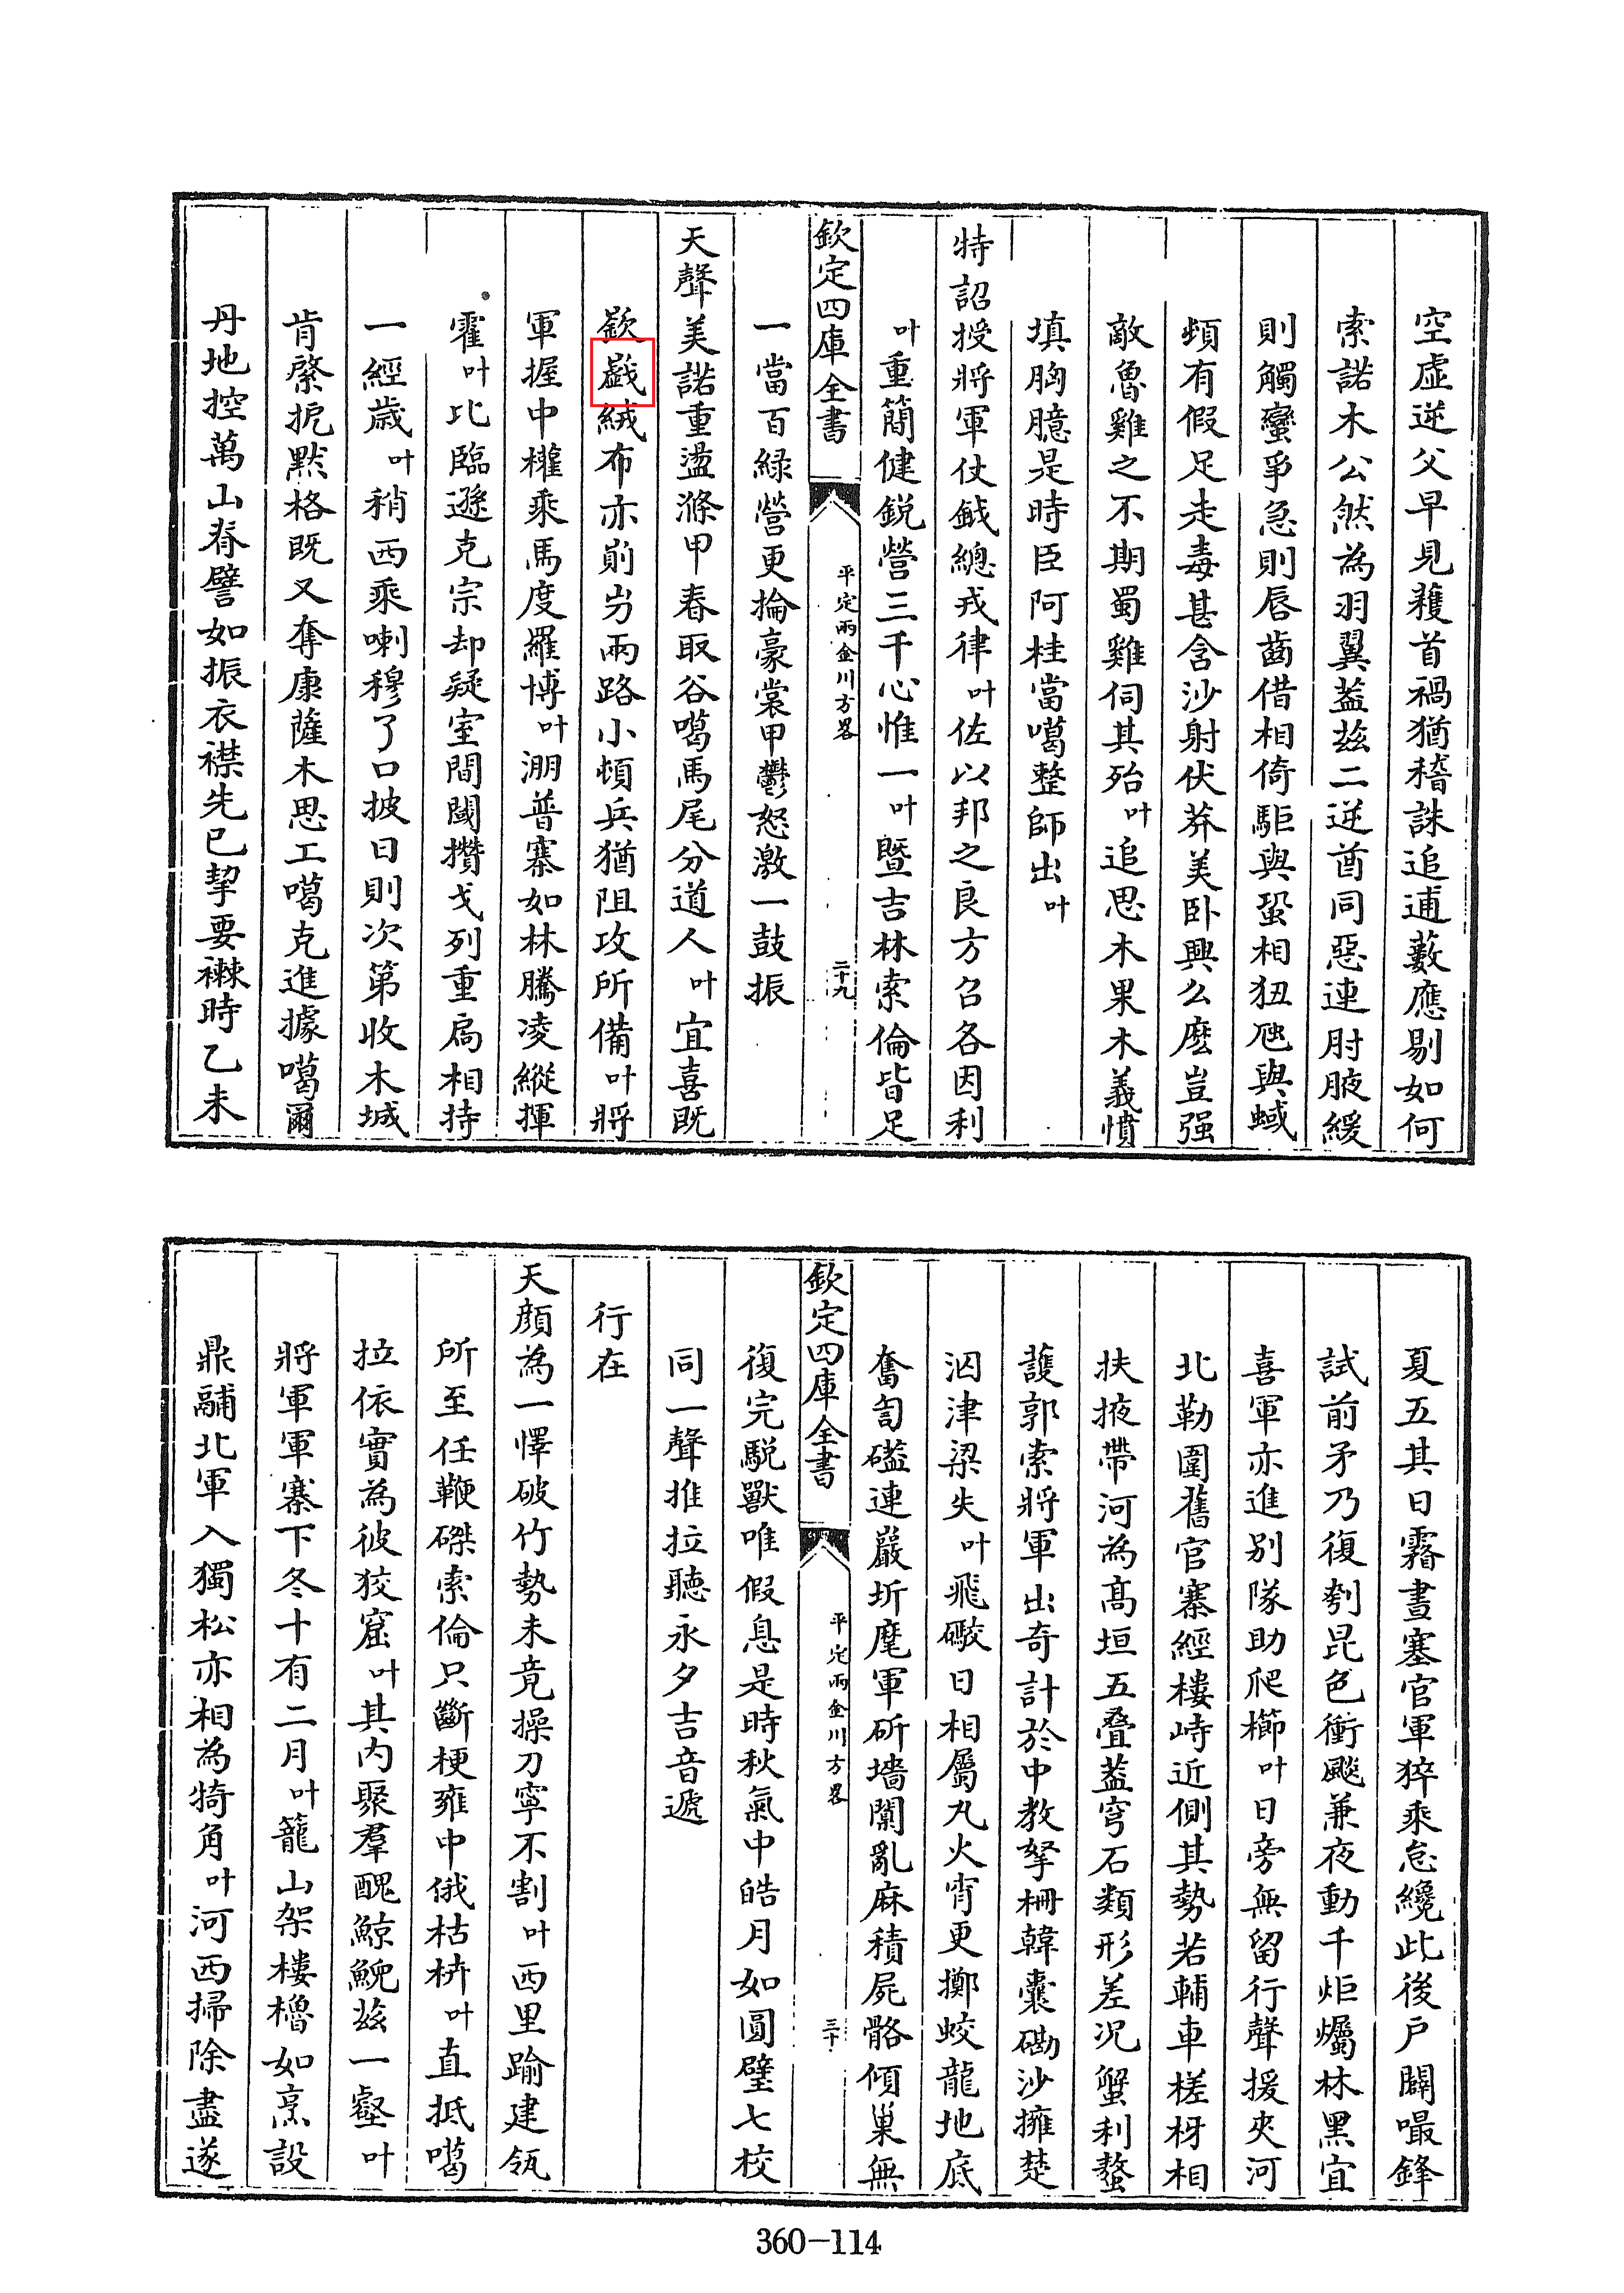 空虛逆父早見獲首禍猶稽誅追逋藪應剔如何
索諾木公然為羽翼蓋茲二逆酋同惡連肘腋緩
則觸蠻爭急則唇齒借相倚駏與蛩相狃虺與蜮
頫有假足走毒甚含沙射伏莽美卧興么麽豈强
敵魯雞之不期蜀雞伺其殆叶追思木果木義憤
填胸臆是時臣阿桂當噶整師出叶
特詔授將軍仗鉞總戎律叶佐以邦之良方召各因利
叶重簡健鋭營三千心惟一叶暨吉林索倫皆足
欽定四庫全書
平定兩金川方畧
二十九
一當百綠營更掄豪裳甲鬱怒激一鼓振
天聲美諾重盪滌甲春取谷噶馬尾分道人叶宜喜既
嶔巇絨布亦崱屴兩路小頓兵猶阻攻所備叶將
軍握中權乘馬度羅博叶淜普寨如林騰凌縱揮
霍叶比臨遜克宗却疑室間閾攢戈列重扃相持
一經歲叶稍西乘喇穆了口披日則次第收木城
肯綮扼默格既又奪康薩木思工噶克進據噶爾
丹地控萬山脊譬如振衣襟先已挈要襋時乙未
夏五其日霧晝塞官軍猝乘怠纔此後户闢嘬鋒
試前矛乃復刳昆色衝飈兼夜動千炬爥林黑宜
喜軍亦進别隊助爬櫛叶日旁無留行聲援夾河
北勒圍舊官寨經樓峙近側其勢若輔車槎枒相
扶掖帶河為髙垣五叠蓋穹石類形差况蟹利螯
護郭索將軍出奇計於中教拏柵韓囊磡沙擁楚
泅津梁失叶飛礮日相屬丸火宵更擲蛟龍地底
奮訇礚連巖坼麾軍斫墻闠亂麻積屍骼傾巢無
欽定四庫全書
平定兩金川方畧
三十
復完駾獸唯假息是時秋氣中皓月如圓璧七校
同一聲推拉聽永夕吉音遞
行在
天顔為一懌破竹勢未竟操刀寧不割叶西里踰建瓴
所至任鞭磔索倫只斷梗雍中俄枯枿叶直抵噶
拉依實為彼狡窟叶其内聚羣醜鯨鯢茲一壑叶
將軍軍寨下冬十有二月叶籠山架樓櫓如烹設
鼎鬴北軍入獨松亦相為犄角叶河西掃除盡遂
360-114